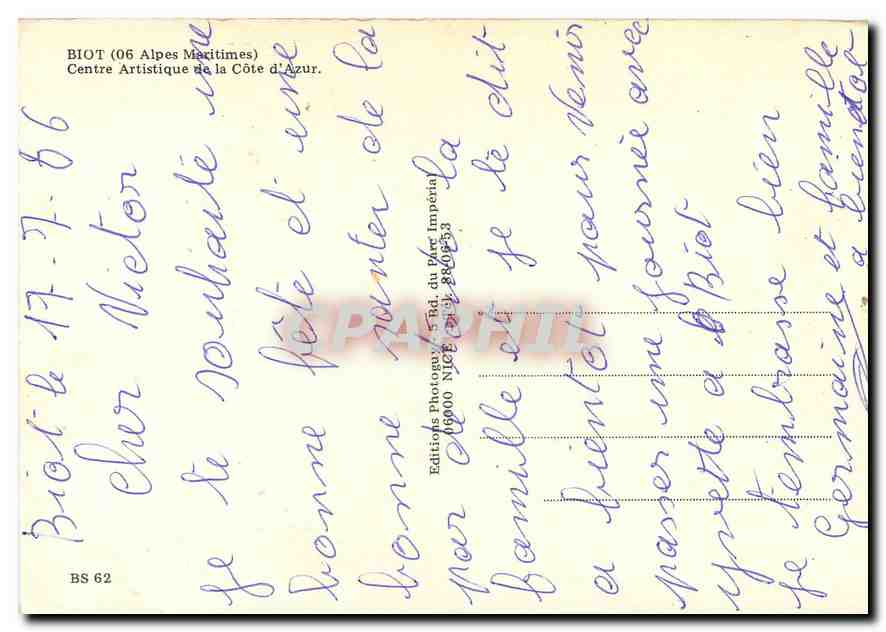 BIOT (06 Alpes Maritimes)
Centre Artistique de la Côte d'Azur.
Biot le 17-7-86
Cher Victor
Je te souhaite une
bonne fête et une
bonne santer de la
par de toute la
Famille et je te dit
a bientot pour venir
passer une journée avec
Yvette a Biot
Je t'embrasse bien
Germaine et famille
a bientot
Editions Photoguy, 5 Bd. du Parc Impérial
06000 NICE Tél. 88-06-53
BS 62
CPAPHIL